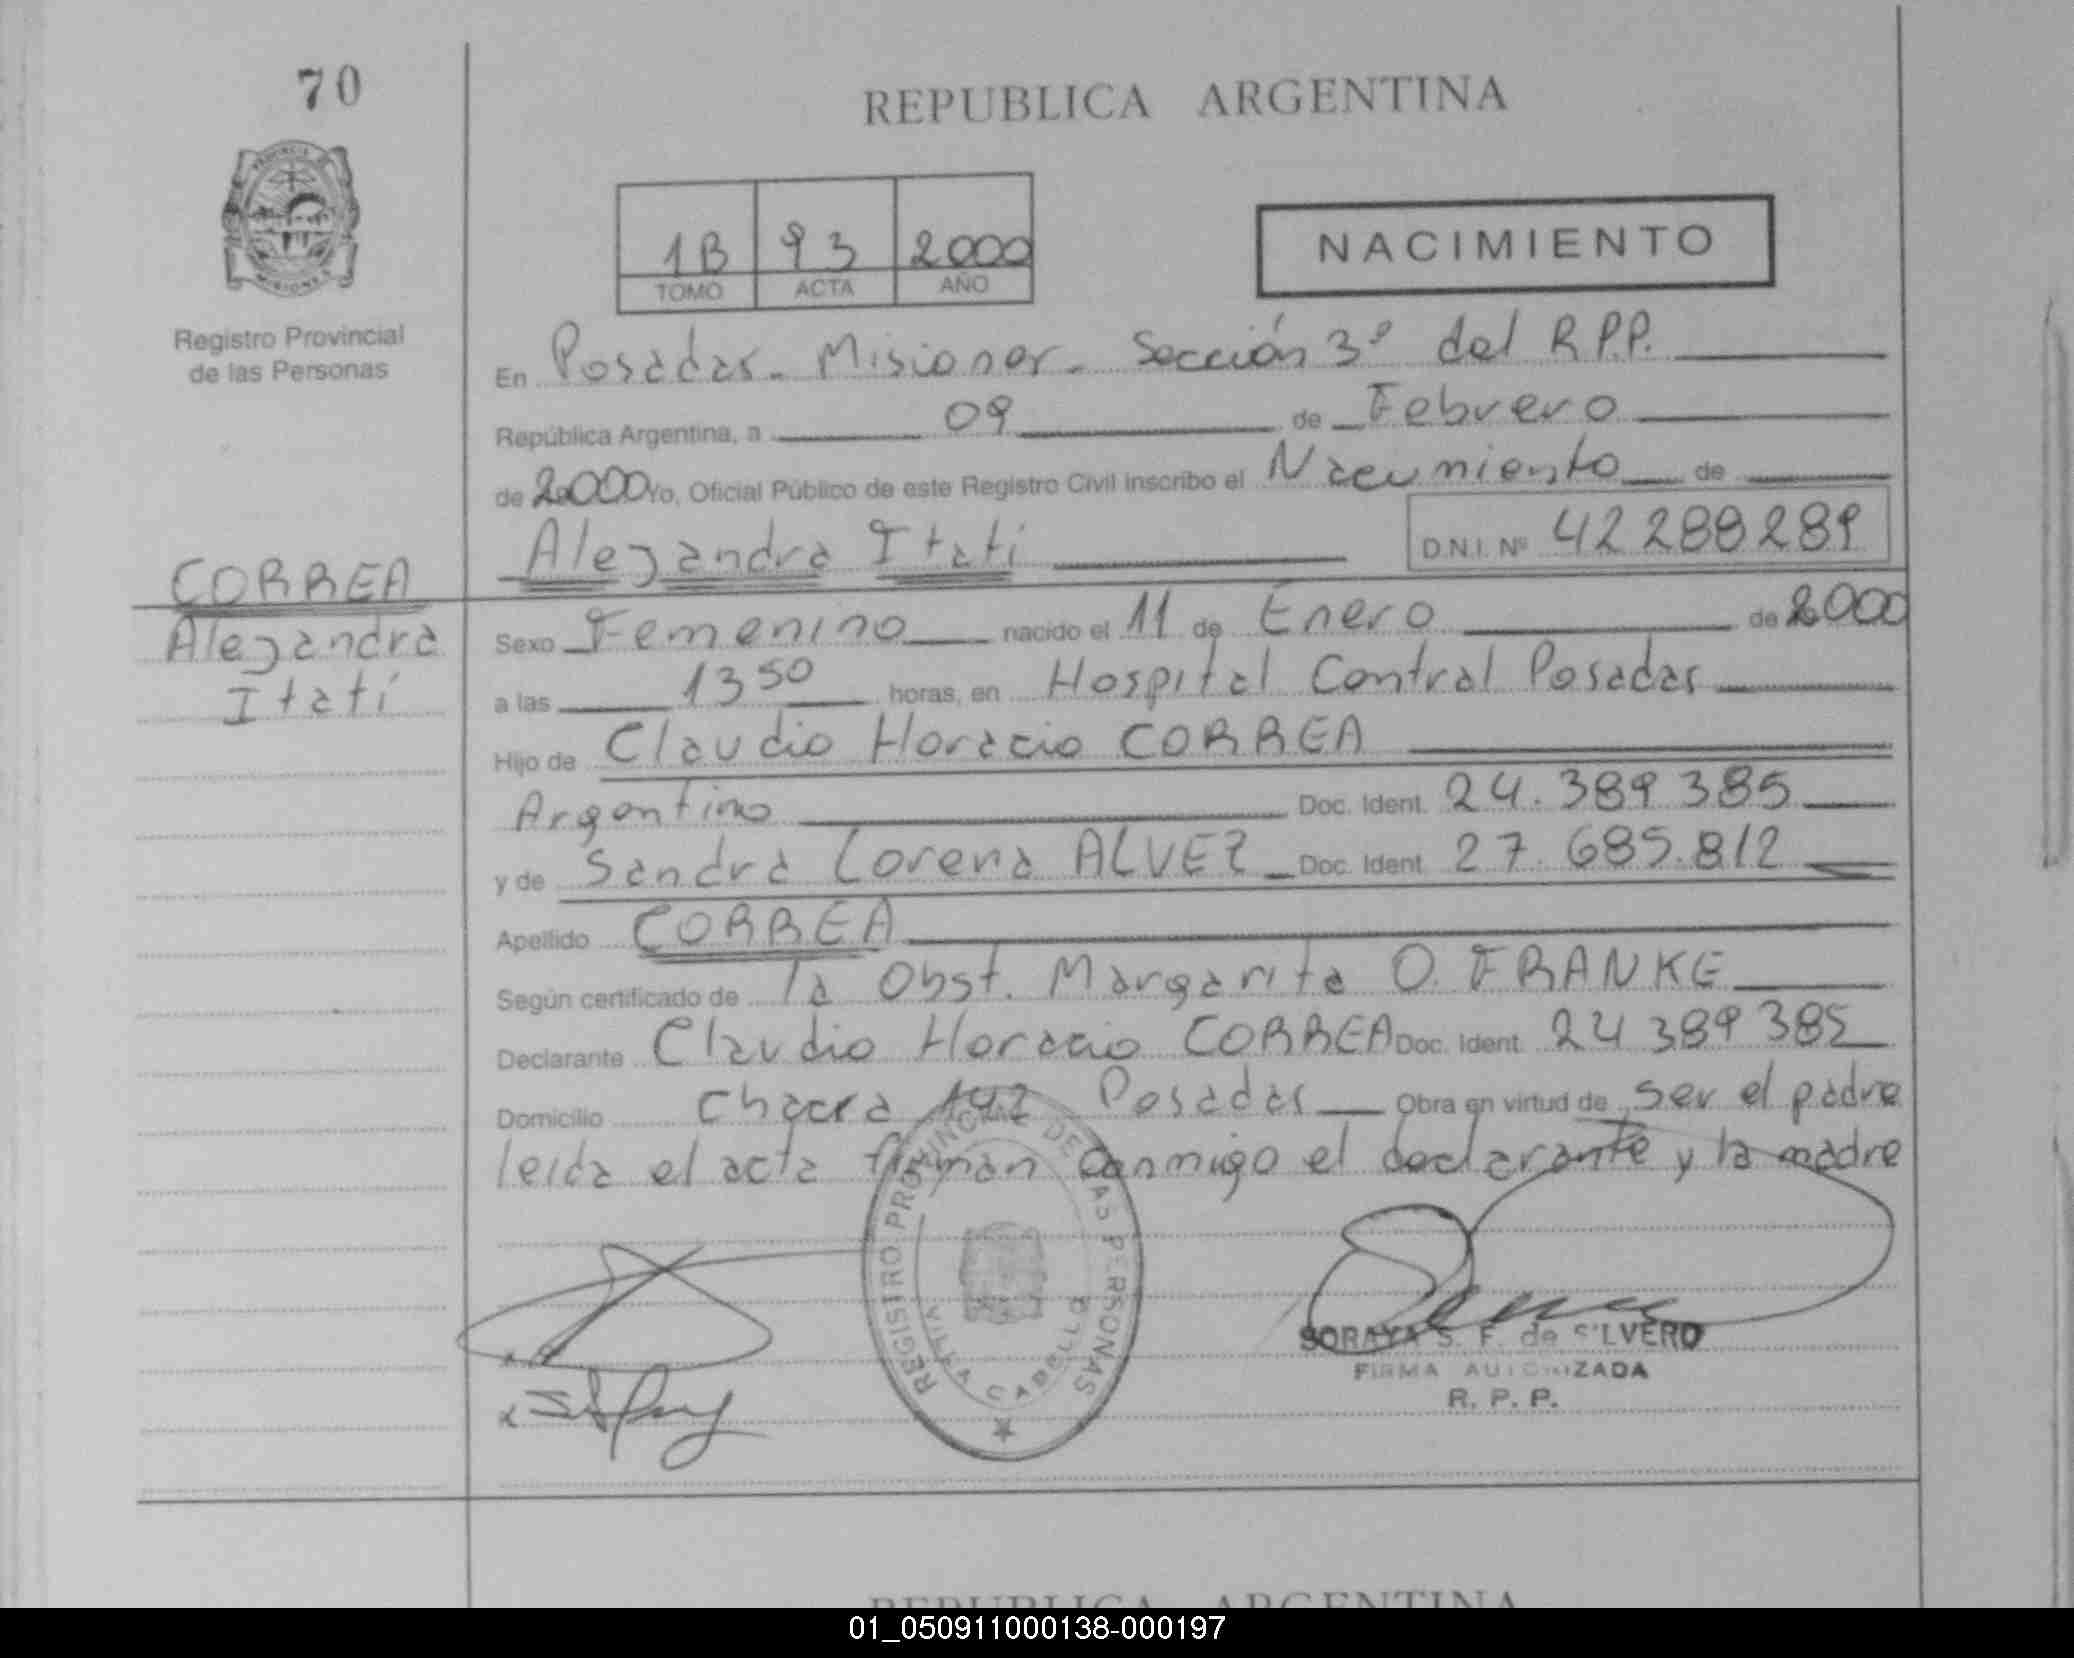 70
REPUBLICA ARGENTINA
PROVINCIA DE
MISIONES
1B 93 2000
TOMO ACTA AÑO
NACIMIENTO
Registro Provincial
de las Personas
En Posadas - Misiones - Sección 3º del R.P.P.
República Argentina, a 09 de Febrero
de 2.000 Yo, Oficial Público de este Registro Civil inscribo el Nacimiento de
Alejandra Itatí D.N.I. Nº 42288289
CORREA
Alejandra
Itatí
Sexo Femenino nacido el 11 de Enero de 2000
a las 13 50 horas, en Hospital Central Posadas
Hijo de Claudio Horacio CORREA
Argentino Doc. Ident. 24.389 385
y de Sandra Lorena ALVEZ Doc. Ident. 27.685.812
Apellido CORREA
Según certificado de la Obst. Margarita O. FRANKE
Declarante Claudio Horacio CORREA Doc. Ident. 24 389 385
Domicilio Chacra 142 Posadas Obra en virtud de ser el padre
leida el acta firman conmigo el declarante y la madre
REGISTRO PROVINCIAL DE LAS PERSONAS
VILLA CABELLO
SORAYA S. F. de SILVERO
FIRMA AUTORIZADA
R. P. P.
REPUBLICA ARGENTINA
01_050911000138-000197